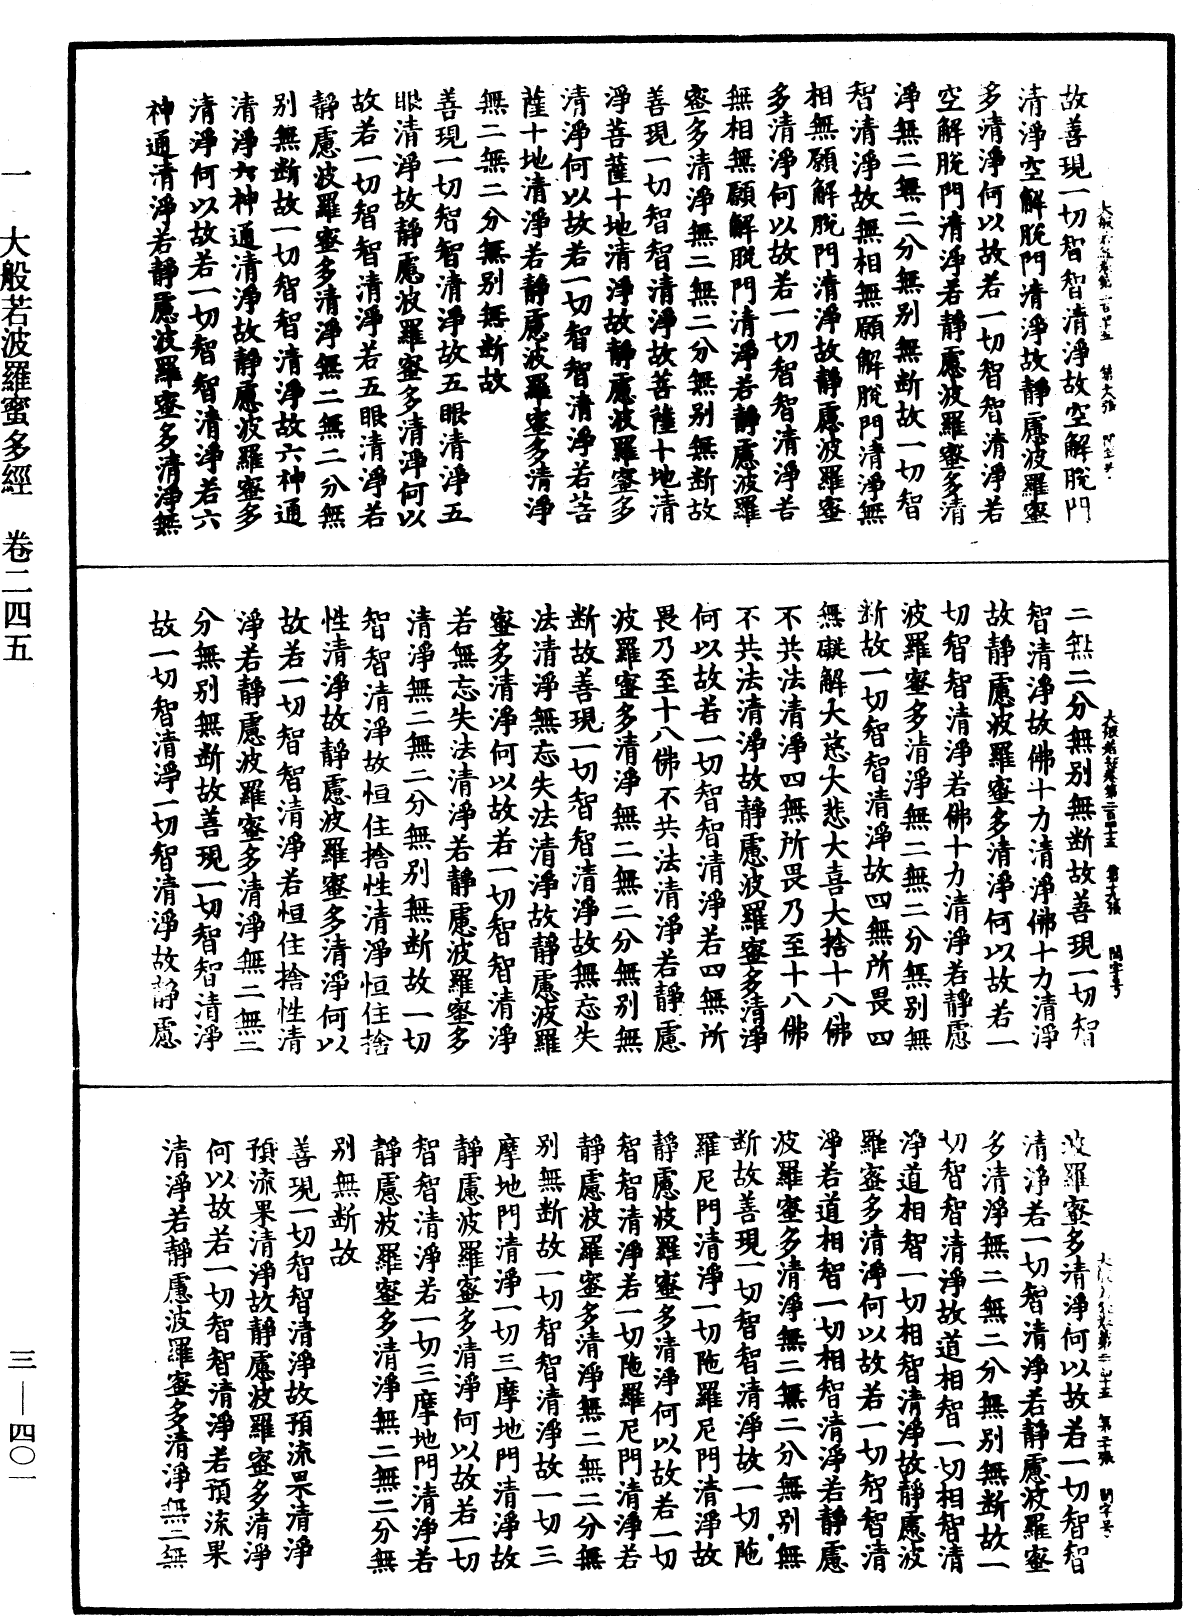 故善現一切智智清淨故空解脫門
清淨空解脫門清淨故靜慮波羅蜜
多清淨何以故若一切智智清淨若
空解脫門清淨若靜慮波羅蜜多清
淨無二無二分無別無斷故一切智
智清淨故無相無願解脫門清淨無
相無願解脫門清淨故靜慮波羅蜜
多清淨何以故若一切智智清淨若
無相無願解脫門清淨若靜慮波羅
蜜多清淨無二無二分無別無斷故
善現一切智智清淨故菩薩十地清
淨菩薩十地清淨故靜慮波羅蜜多
清淨何以故若一切智智清淨若菩
薩十地清淨若靜慮波羅蜜多清淨
無二無二分無別無斷故
善現一切智智清淨故五眼清淨五
眼清淨故靜慮波羅蜜多清淨何以
故若一切智智清淨若五眼清淨若
靜慮波羅蜜多清淨無二無二分無
別無斷故一切智智清淨故六神通
清淨六神通清淨故靜慮波羅蜜多
清淨何以故若一切智智清淨若六
神通清淨若靜慮波羅蜜多清淨無
大般若經卷第二百四十五 第十八張 閏字号
二無二分無別無斷故善現一切智
智清淨故佛十力清淨佛十力清淨
故靜慮波羅蜜多清淨何以故若一
切智智清淨若佛十力清淨若靜慮
波羅蜜多清淨無二無二分無別無
斷故一切智智清淨故四無所畏四
無礙解大慈大悲大喜大捨十八佛
不共法清淨四無所畏乃至十八佛
不共法清淨故靜慮波羅蜜多清淨
何以故若一切智智清淨若四無所
畏乃至十八佛不共法清淨若靜慮
波羅蜜多清淨無二無二分無別無
斷故善現一切智智清淨故無忘失
法清淨無忘失法清淨故靜慮波羅
蜜多清淨何以故若一切智智清淨
若無忘失法清淨若靜慮波羅蜜多
清淨無二無二分無別無斷故一切
智智清淨故恒住捨性清淨恒住捨
性清淨故靜慮波羅蜜多清淨何以
故若一切智智清淨若恒住捨性清
淨若靜慮波羅蜜多清淨無二無二
分無別無斷故善現一切智智清淨
故一切智清淨一切智清淨故靜慮
波羅蜜多清淨何以故若一切智智
清淨若一切智清淨若靜慮波羅蜜
多清淨無二無二分無別無斷故一
切智智清淨故道相智一切相智清
淨道相智一切相智清淨故靜慮波
羅蜜多清淨何以故若一切智智清
淨若道相智一切相智清淨若靜慮
波羅蜜多清淨無二無二分無別無
斷故善現一切智智清淨故一切陁
羅尼門清淨一切陁羅尼門清淨故
靜慮波羅蜜多清淨何以故若一切
智智清淨若一切陁羅尼門清淨若
靜慮波羅蜜多清淨無二無二分無
別無斷故一切智智清淨故一切三
摩地門清淨一切三摩地門清淨故
靜慮波羅蜜多清淨何以故若一切
智智清淨若一切三摩地門清淨若
靜慮波羅蜜多清淨無二無二分無
別無斷故
善現一切智智清淨故預流果清淨
預流果清淨故靜慮波羅蜜多清淨
何以故若一切智智清淨若預流果
清淨若靜慮波羅蜜多清淨無二無
一 大般若波羅蜜多經 卷二四五
三—四〇一